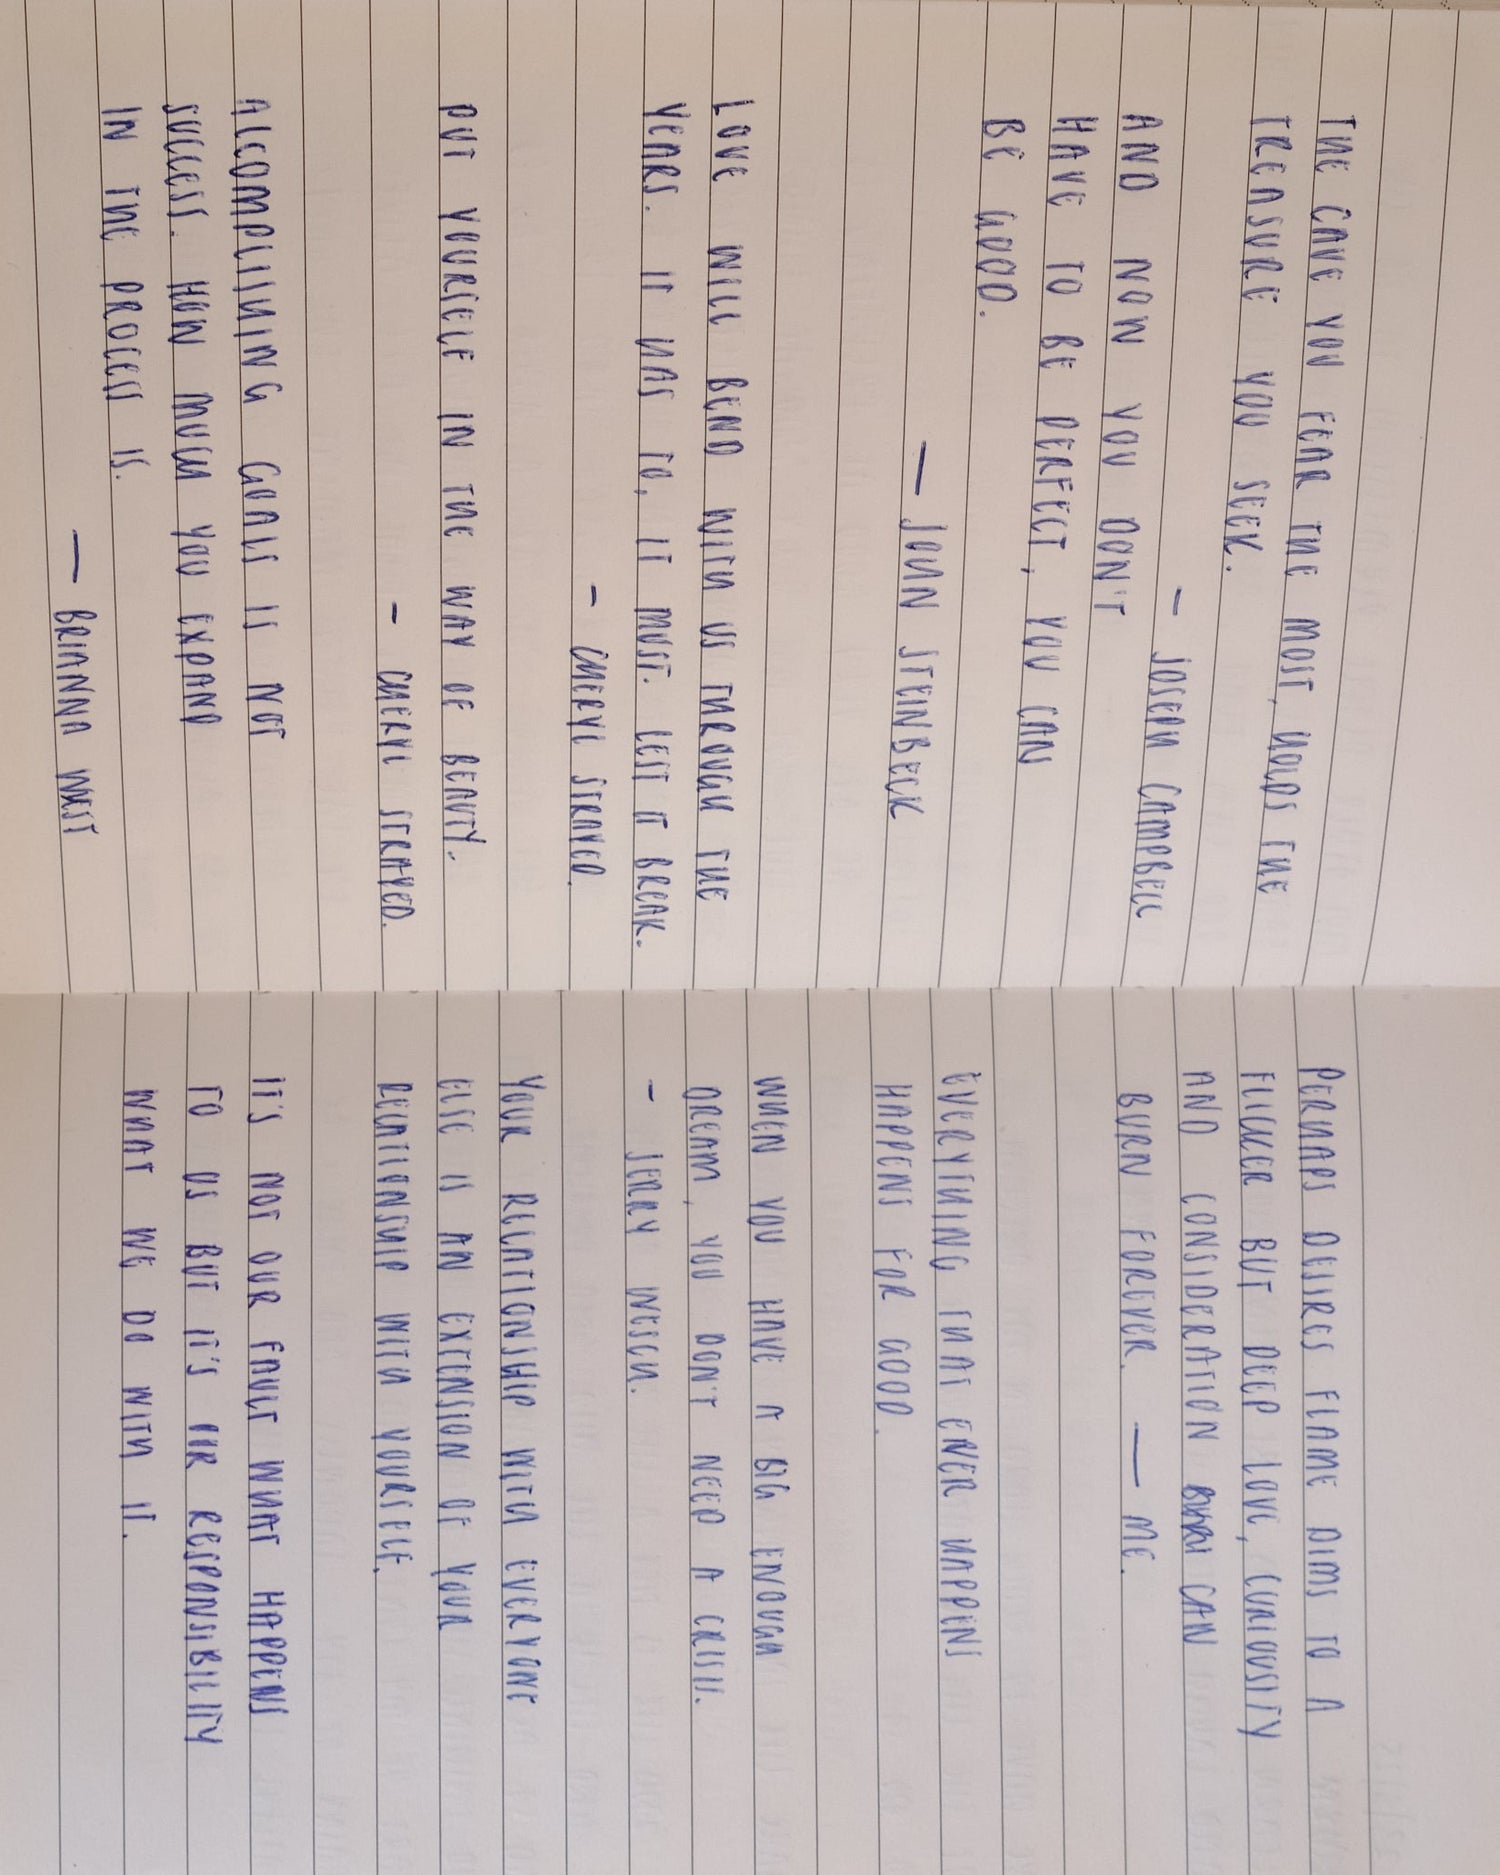 THE CAVE YOU FEAR THE MOST, HOLDS THE
TREASURE YOU SEEK.
- JOSEPH CAMPBELL
AND NOW YOU DON'T
HAVE TO BE PERFECT, YOU CAN
BE GOOD.
— JOHN STEINBECK
LOVE WILL BEND WITH US THROUGH THE
YEARS. IT HAS TO, IT MUST. LEST IT BREAK.
- CHERYL STRAYED.
PUT YOURSELF IN THE WAY OF BEAUTY.
- CHERYL STRAYED.
ACCOMPLISHING GOALS IS NOT
SUCCESS. HOW MUCH YOU EXPAND
IN THE PROCESS IS.
— BRIANNA WEST
PERHAPS DESIRES FLAME DIMS TO A
FLICKER BUT DEEP LOVE, CURIOUSITY
AND CONSIDERATION CAN
BURN FOREVER. — ME.
EVERYTHING THAT EVER HAPPENS
HAPPENS FOR GOOD.
WHEN YOU HAVE A BIG ENOUGH
DREAM, YOU DON'T NEED A CRISIS.
- JERRY WESCH.
YOUR RELATIONSHIP WITH EVERYONE
ELSE IS AN EXTENSION OF YOUR
RELATIONSHIP WITH YOURSELF.
IT'S NOT OUR FAULT WHAT HAPPENS
TO US BUT IT'S OUR RESPONSIBILITY
WHAT WE DO WITH IT.